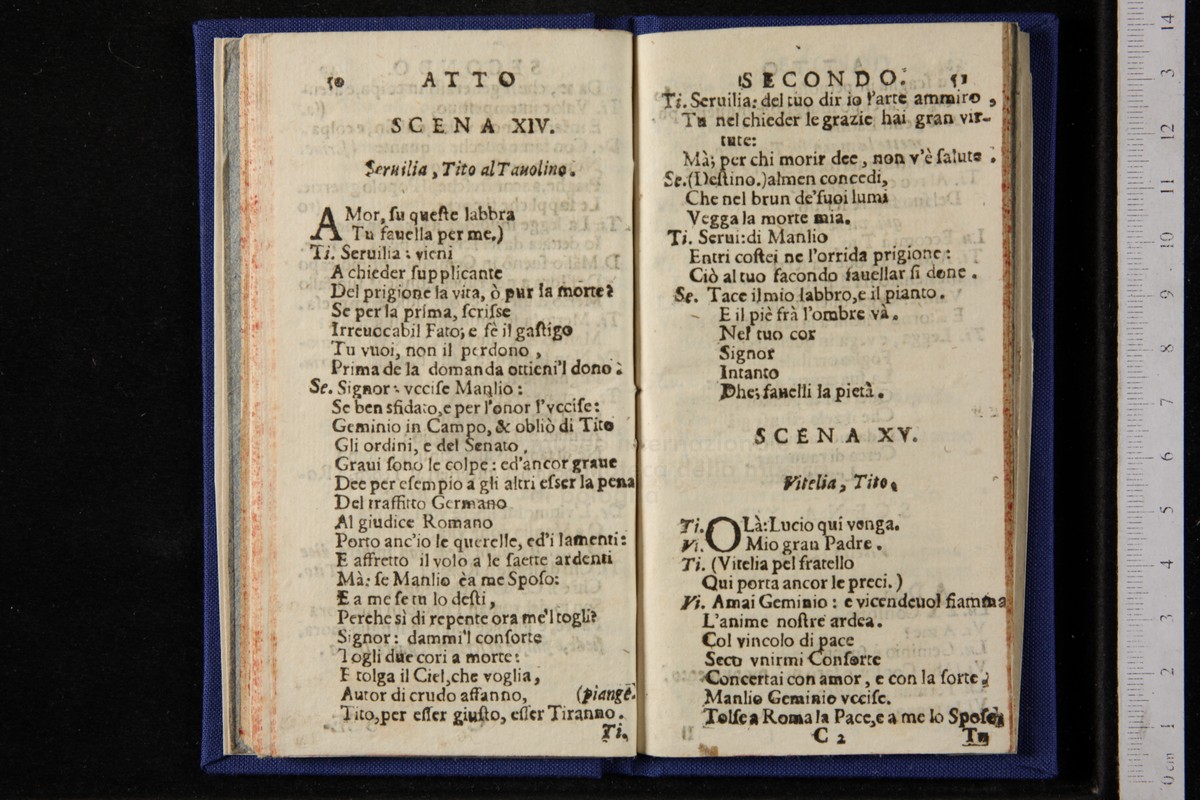 50 ATTO
SCENA XIV.
Seruilia, Tito al Tauolino.
AMor, ſu queſte labbra
Tu fauella per me.)
Ti. Seruilia: vieni
A chieder ſupplicante
Del prigione la vita, ò pur la morte?
Se per la prima, ſcriſſe
Irreuocabil Fato; e ſè il gaſtigo
Tu vuoi, non il perdono,
Prima de la domanda ottieni'l dono.
Se. Signor: vcciſe Manlio:
Se ben sfidato, e per l'onor l'vcciſe:
Geminio in Campo, & obliò di Tito
Gli ordini, e del Senato.
Graui ſono le colpe: ed'ancor graue
Dee per eſempio a gli altri eſſer la pena
Del traffitto Germano
Al giudice Romano
Porto anc'io le querelle, ed'i lamenti:
E affretto il volo a le ſaette ardenti
Mà: ſe Manlio è a me Spoſo:
E a me ſe tu lo deſti,
Perche sì di repente ora me'l togli?
Signor: dammi'l conſorte
Togli due cori a morte:
E tolga il Ciel, che voglia,
Autor di crudo affanno, (piange.
Tito, per eſſer giuſto, eſſer Tiranno.
Ti.
SECONDO. 51
Ti. Seruilia: del tuo dir io l'arte ammiro,
Tu nel chieder le grazie hai gran vir-
tute:
Mà; per chi morir dee, non v'è ſalute.
Se. (Deſtino.) almen concedi,
Che nel brun de'ſuoi lumi
Vegga la morte mia.
Ti. Serui: di Manlio
Entri coſtei ne l'orrida prigione:
Ciò al tuo facondo fauellar ſi done.
Se. Tace il mio labbro, e il pianto.
E il piè frà l'ombre và.
Nel tuo cor
Signor
Intanto
Dhe; fauelli la pietà.
SCENA XV.
Vitelia, Tito.
Ti. OLà: Lucio qui venga.
Vi. Mio gran Padre.
Ti. (Vitelia pel fratello
Qui porta ancor le preci.)
Vi. Amai Geminio: e vicendeuol fiamma
L'anime noſtre ardea.
Col vincolo di pace
Seco vnirmi Conſorte
Concertai con amor, e con la ſorte;
Manlio Geminio vcciſe.
Tolſe a Roma la Pace, e a me lo Spoſo.
C 2 Tu